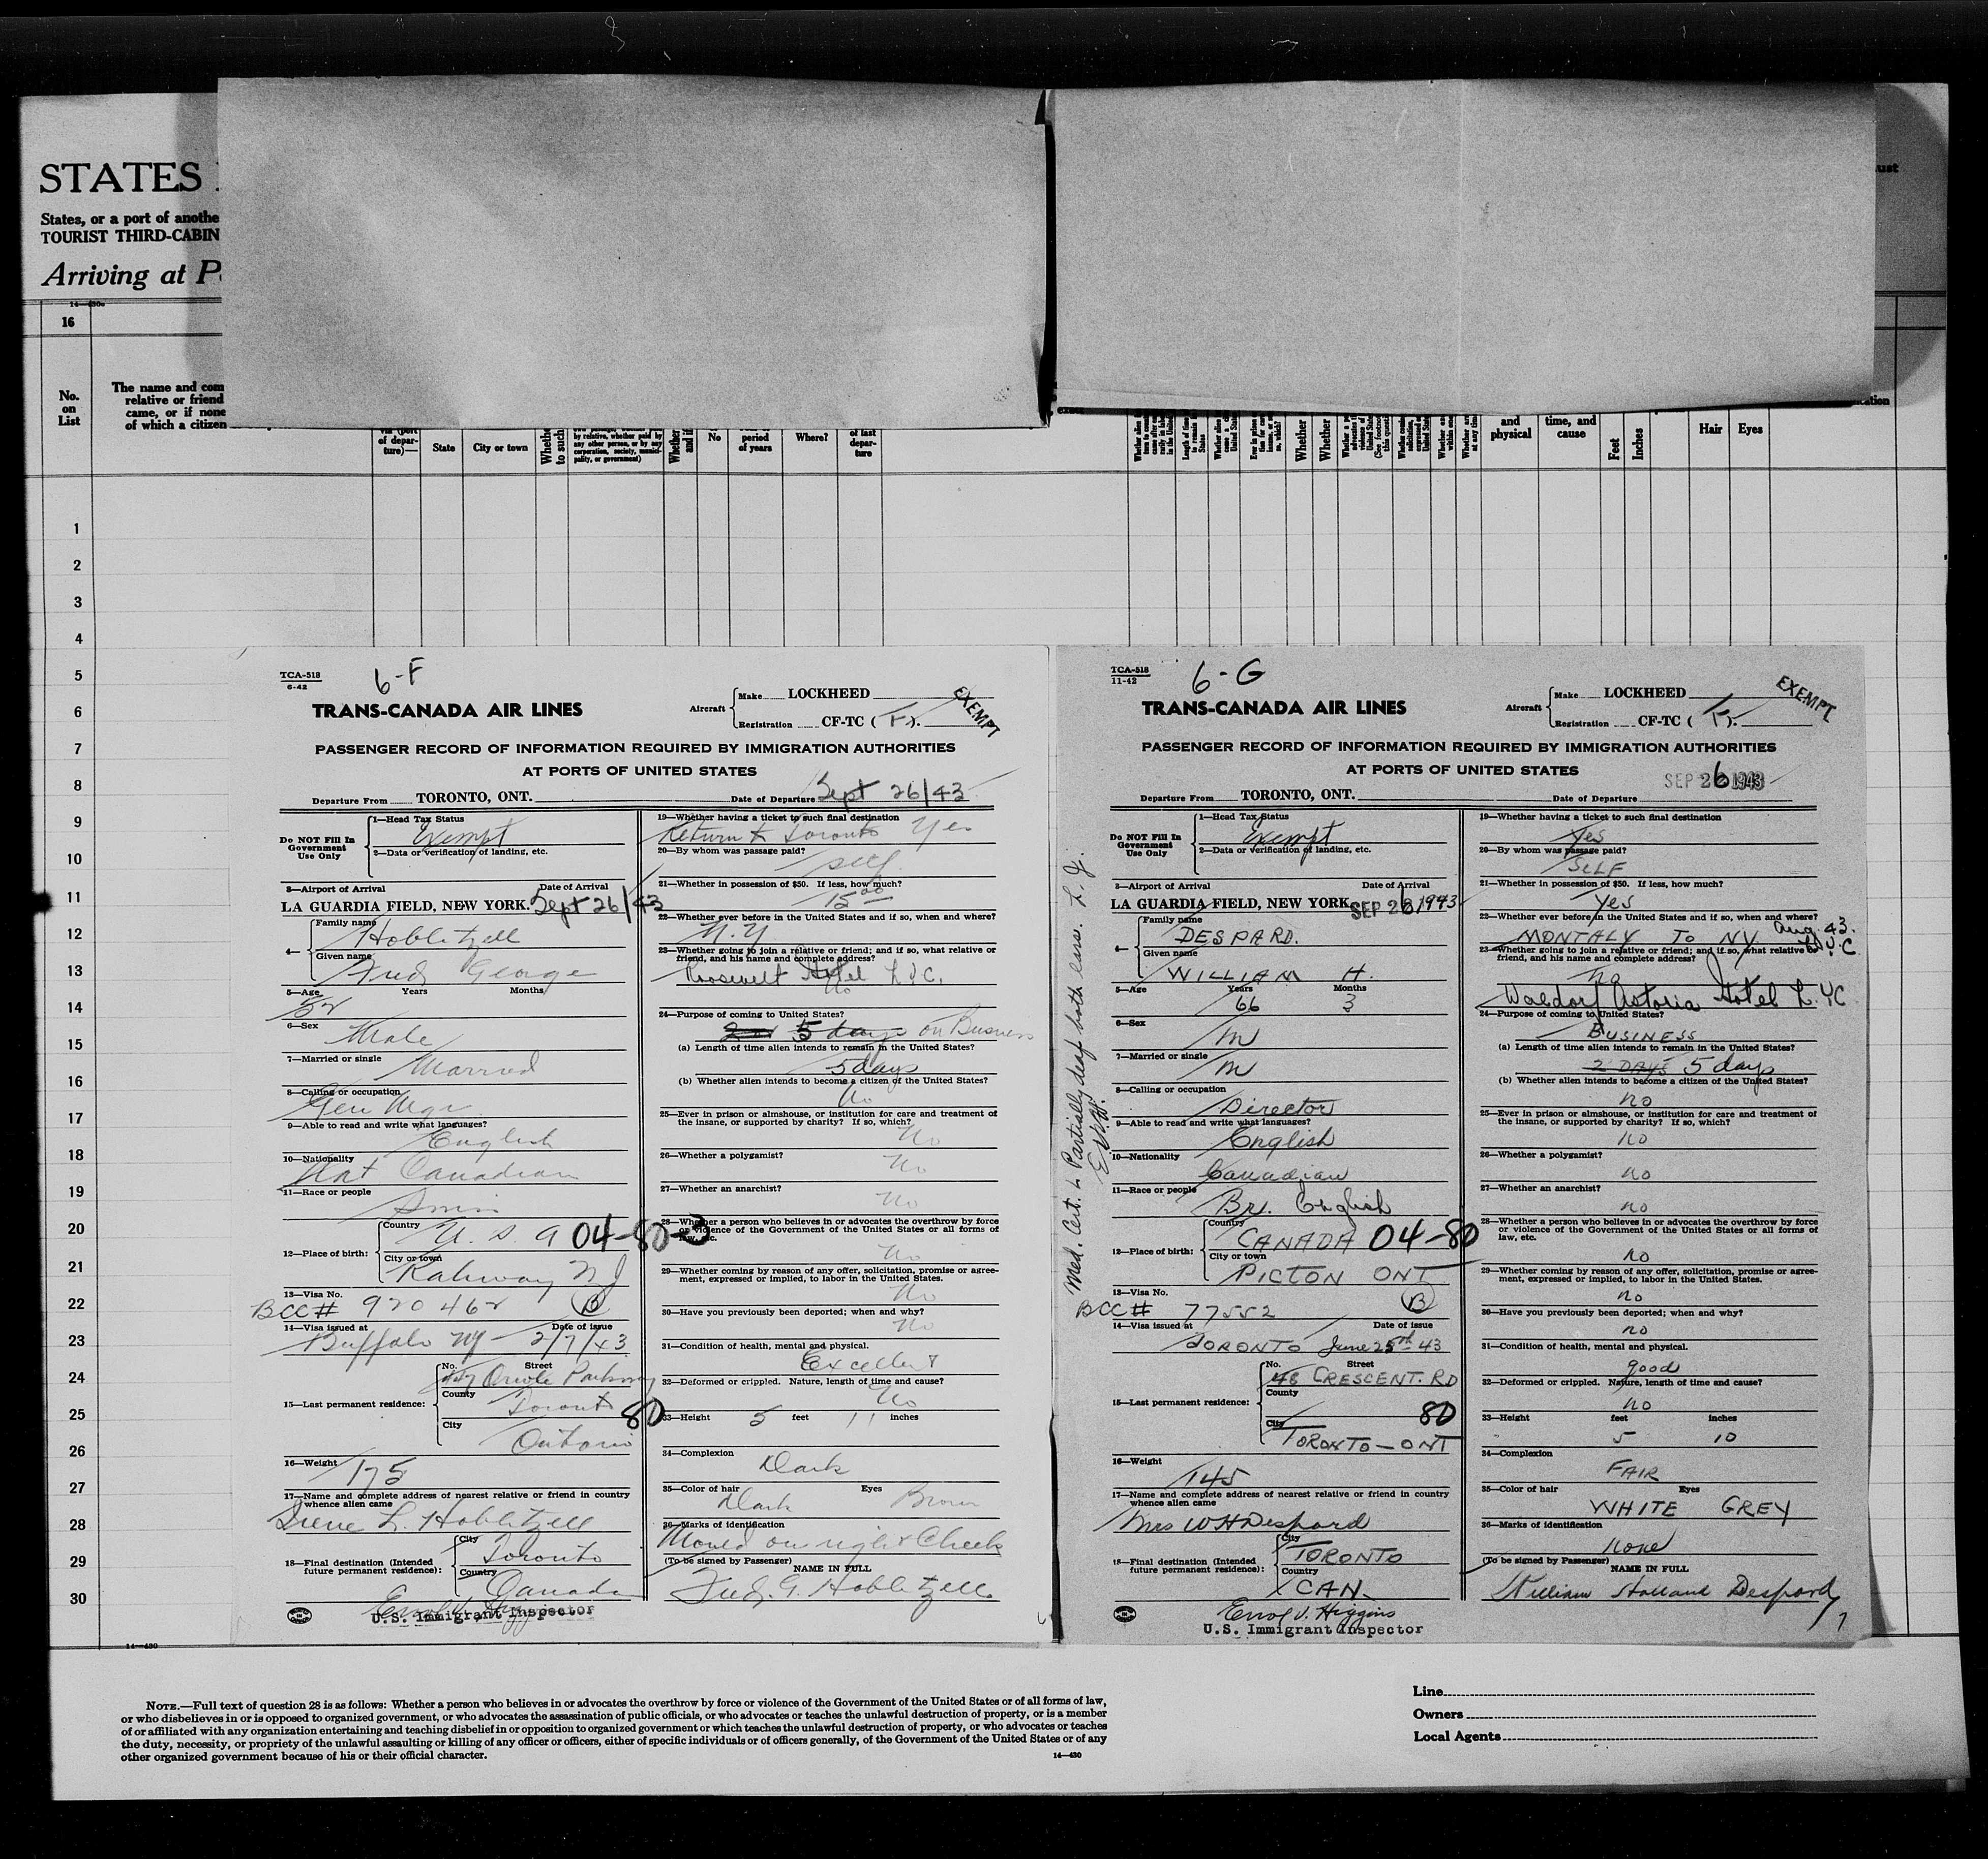 STATES
States, or a port of anothe
TOURIST THIRD-CABIN
Arriving at P
ust
14—430
16
No.
on
List
The name and com
relative or friend
came, or if none
of which a citizen
of depar-
ture)—
State
City or town
Whethe
to such
by relative, whether paid by
any other person, or by any
corporation, society, munici-
pality, or government)
Whether
and if
No
period
of years
Where?
of last
depar-
ture
Whether
Whether
and
physical
time, and
cause
Feet
Inches
Hair
Eyes
1
2
3
4
5
6
7
8
9
10
11
12
13
14
15
16
17
18
19
20
21
22
23
24
25
26
27
28
29
30
TCA-518
6-42
6-F
TRANS-CANADA AIR LINES
Aircraft
Make LOCKHEED
Registration CF-TC (T).
EXEMPT
PASSENGER RECORD OF INFORMATION REQUIRED BY IMMIGRATION AUTHORITIES
AT PORTS OF UNITED STATES
Departure From TORONTO, ONT. Date of Departure Sept 26/43
Do NOT Fill In
Government
Use Only
1—Head Tax Status
Exempt
2—Data or verification of landing, etc.
3—Airport of Arrival Date of Arrival
LA GUARDIA FIELD, NEW YORK. Sept 26/43
4—
Family name
Hoblitzell
Given name
Fred George
5—Age Years Months
52
6—Sex
Male
7—Married or single
Married
8—Calling or occupation
Gen Mgr
9—Able to read and write what languages?
English
10—Nationality
Nat Canadian
11—Race or people
Swiss
12—Place of birth:
Country
U. S. A 04-80-3
City or town
Rahway NJ
13—Visa No.
BCC# 920462 B
14—Visa issued at Date of issue
Buffalo NY — 2/7/43
15—Last permanent residence:
No. Street
Oriole Parkway
County
Toronto 80
City
Ontario
16—Weight
175
17—Name and complete address of nearest relative or friend in country
whence alien came
Irene L. Hoblitzell
18—Final destination (Intended
future permanent residence):
City
Toronto
Country
Canada
U.S. Immigrant Inspector
19—Whether having a ticket to such final destination
Return to Toronto Yes
20—By whom was passage paid?
self
21—Whether in possession of $50. If less, how much?
15 00
22—Whether ever before in the United States and if so, when and where?
N.Y
23—Whether going to join a relative or friend; and if so, what relative or
friend, and his name and complete address?
Roosevelt Hotel N.Y.C.
No
24—Purpose of coming to United States?
5 days on Business
(a) Length of time alien intends to remain in the United States?
5 days
(b) Whether alien intends to become a citizen of the United States?
No
25—Ever in prison or almshouse, or institution for care and treatment of
the insane, or supported by charity? If so, which?
No
26—Whether a polygamist?
No
27—Whether an anarchist?
No
28—Whether a person who believes in or advocates the overthrow by force
or violence of the Government of the United States or all forms of
law, etc.
No
29—Whether coming by reason of any offer, solicitation, promise or agree-
ment, expressed or implied, to labor in the United States.
No
30—Have you previously been deported; when and why?
No
31—Condition of health, mental and physical.
Excellent
32—Deformed or crippled. Nature, length of time and cause?
No
33—Height 5 feet 11 inches
34—Complexion
Dark
35—Color of hair Eyes
Dark Brown
36—Marks of identification
Mould on right Cheek
(To be signed by Passenger)
NAME IN FULL
Fred. G. Hoblitzell
TCA-518
11-42
6-G
TRANS-CANADA AIR LINES
Aircraft
Make LOCKHEED
Registration CF-TC (T).
EXEMPT
PASSENGER RECORD OF INFORMATION REQUIRED BY IMMIGRATION AUTHORITIES
AT PORTS OF UNITED STATES
Departure From TORONTO, ONT. Date of Departure SEP 26 1943
Med. Cert. Partially deaf both ears.
Do NOT Fill In
Government
Use Only
1—Head Tax Status
Exempt
2—Data or verification of landing, etc.
3—Airport of Arrival Date of Arrival
LA GUARDIA FIELD, NEW YORK. SEP 26 1943
4—
Family name
DESPARD.
Given name
WILLIAM H.
5—Age Years Months
66 3
6—Sex
M
7—Married or single
M
8—Calling or occupation
Director
9—Able to read and write what languages?
English
10—Nationality
Canadian
11—Race or people
Br. English
12—Place of birth:
Country
CANADA 04-80
City or town
PICTON ONT
13—Visa No.
BCC# 77552 B
14—Visa issued at Date of issue
TORONTO June 25th 43
15—Last permanent residence:
No. Street
48 CRESCENT. RD
County
80
City
TORONTO — ONT
16—Weight
145
17—Name and complete address of nearest relative or friend in country
whence alien came
Mrs W H Despard
18—Final destination (Intended
future permanent residence):
City
TORONTO
Country
CAN.
Errol J. Higgins
U.S. Immigrant Inspector
19—Whether having a ticket to such final destination
Yes
20—By whom was passage paid?
SELF
21—Whether in possession of $50. If less, how much?
Yes
22—Whether ever before in the United States and if so, when and where?
MONTHLY TO NY. Aug. 43.
N.Y.C
23—Whether going to join a relative or friend; and if so, what relative or
friend, and his name and complete address?
no
Waldorf Astoria Hotel N.YC
24—Purpose of coming to United States?
BUSINESS
(a) Length of time alien intends to remain in the United States?
2 DAYS 5 days
(b) Whether alien intends to become a citizen of the United States?
no
25—Ever in prison or almshouse, or institution for care and treatment of
the insane, or supported by charity? If so, which?
no
26—Whether a polygamist?
no
27—Whether an anarchist?
no
28—Whether a person who believes in or advocates the overthrow by force
or violence of the Government of the United States or all forms of
law, etc.
no
29—Whether coming by reason of any offer, solicitation, promise or agree-
ment, expressed or implied, to labor in the United States.
no
30—Have you previously been deported; when and why?
no
31—Condition of health, mental and physical.
good
32—Deformed or crippled. Nature, length of time and cause?
no
33—Height feet inches
5 10
34—Complexion
FAIR
35—Color of hair Eyes
WHITE GREY
36—Marks of identification
none
(To be signed by Passenger)
NAME IN FULL
William Holland Despard
14—430
NOTE.—Full text of question 28 is as follows: Whether a person who believes in or advocates the overthrow by force or violence of the Government of the United States or of all forms of law,
or who disbelieves in or is opposed to organized government, or who advocates the assassination of public officials, or who advocates or teaches the unlawful destruction of property, or is a member
of or affiliated with any organization entertaining and teaching disbelief in or opposition to organized government or which teaches the unlawful destruction of property, or who advocates or teaches
the duty, necessity, or propriety of the unlawful assaulting or killing of any officer or officers, either of specific individuals or of officers generally, of the Government of the United States or of any
other organized government because of his or their official character.
14—430
Line
Owners
Local Agents